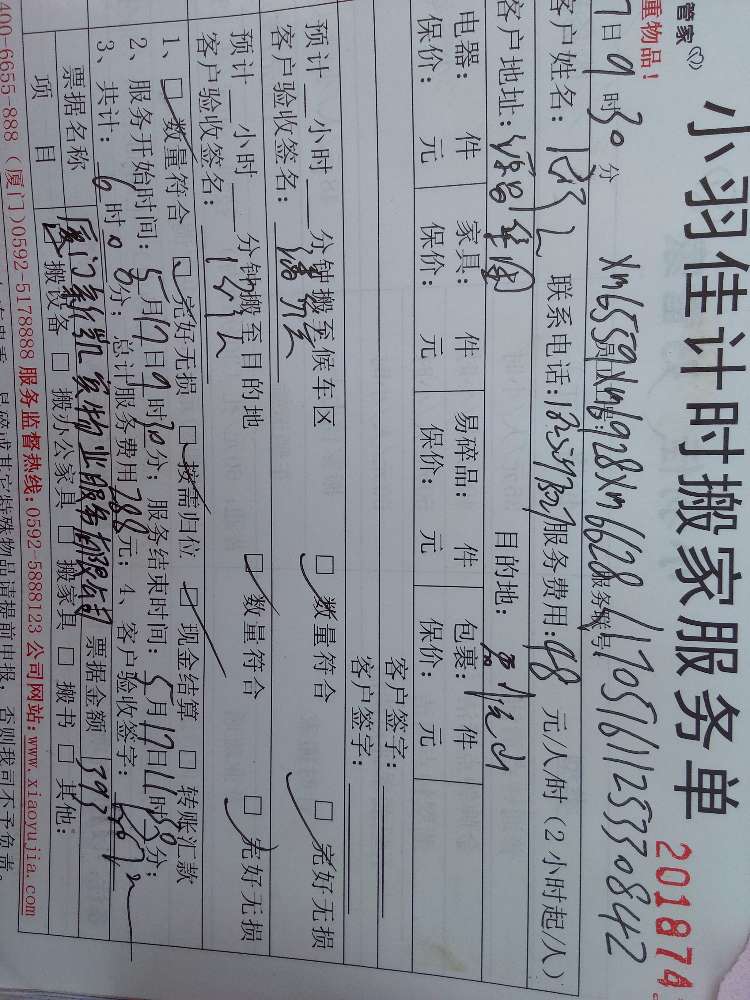 管家
重物品！
小羽佳计时搬家服务单
201874
7日9时30分 xm6559xm6928xm6628 服务账号: 11705161125330842
客户姓名： 联系电话: 服务费用: 98 元/人/时（2小时起/人）
客户地址: 目的地:
电器: 件 家具: 件 易碎品: 件 包裹: 件
保价: 元 保价: 元 保价: 元 保价: 元
客户签字:
客户签字:
预计__小时__分钟搬至候车区 □数量符合 □完好无损
客户验收签名:
预计__小时__分钟搬至目的地 □数量符合 □完好无损
客户验收签名:
1、□数量符合 □完好无损 □按需归位 □现金结算 □转账汇款
2、服务开始时间: 5月17日9时30分; 服务结束时间: 5月17日11时38分;
3、共计: 6时08分; 总计服务费用788元; 4、客户验收签字:
票据名称 厦门新凯宾物业服务有限公司 票据金额 393
项目 搬设备 □搬办公家具 □搬家具 □搬书 □其他:
400-6655-888（厦门)0592-5178888 服务监督热线: 0592-5888123 公司网站: www.xiaoyujia.com
易碎或其它特殊物品请提前申报，否则我司不予负责。